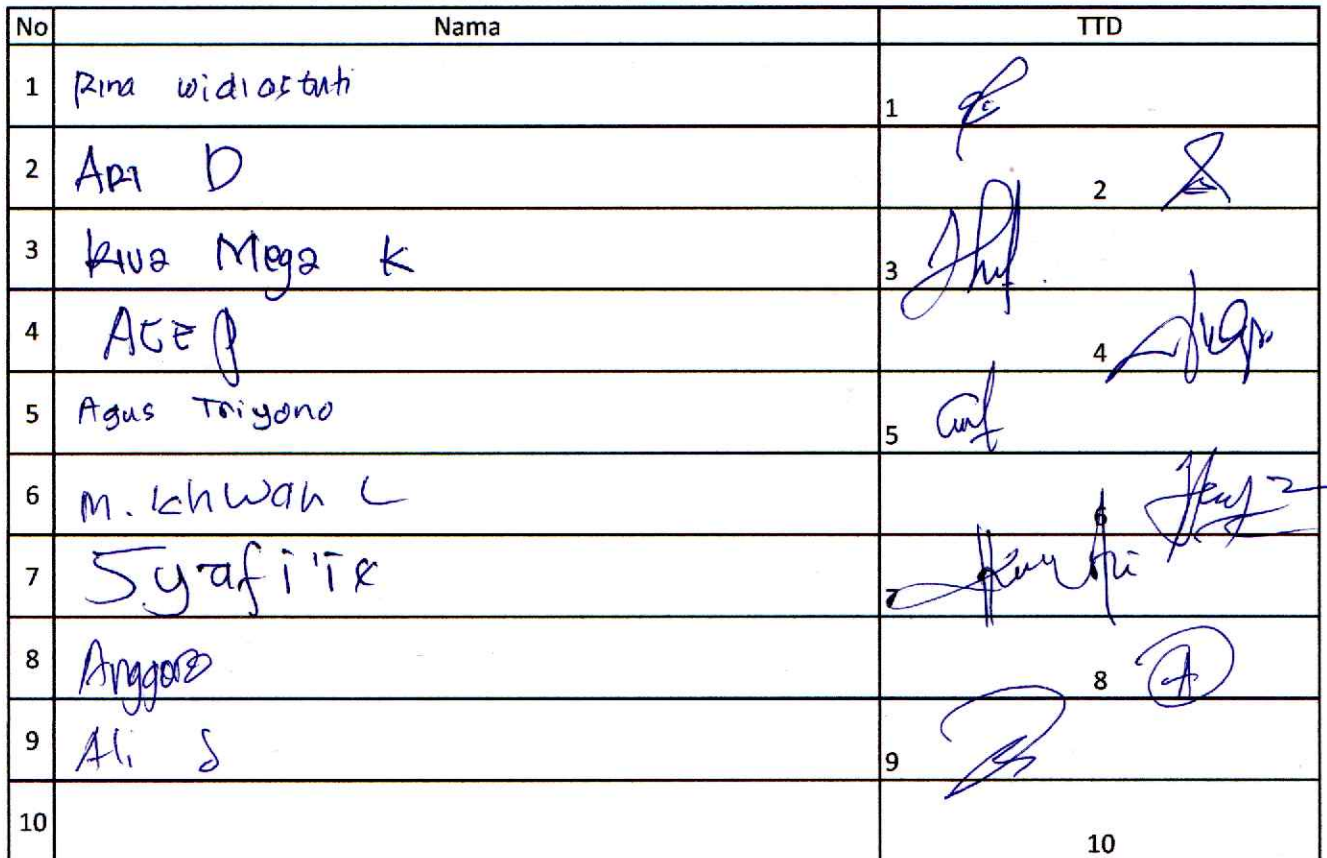 No Nama TTD
1 Rina widiastuti 1
2 Ari D 2
3 Riva Mega K 3
4 Acep 4
5 Agus Triyono 5
6 M. Ichwan L 6
7 Syafi'ie 7
8 Anggoro 8
9 Ali S 9
10 10